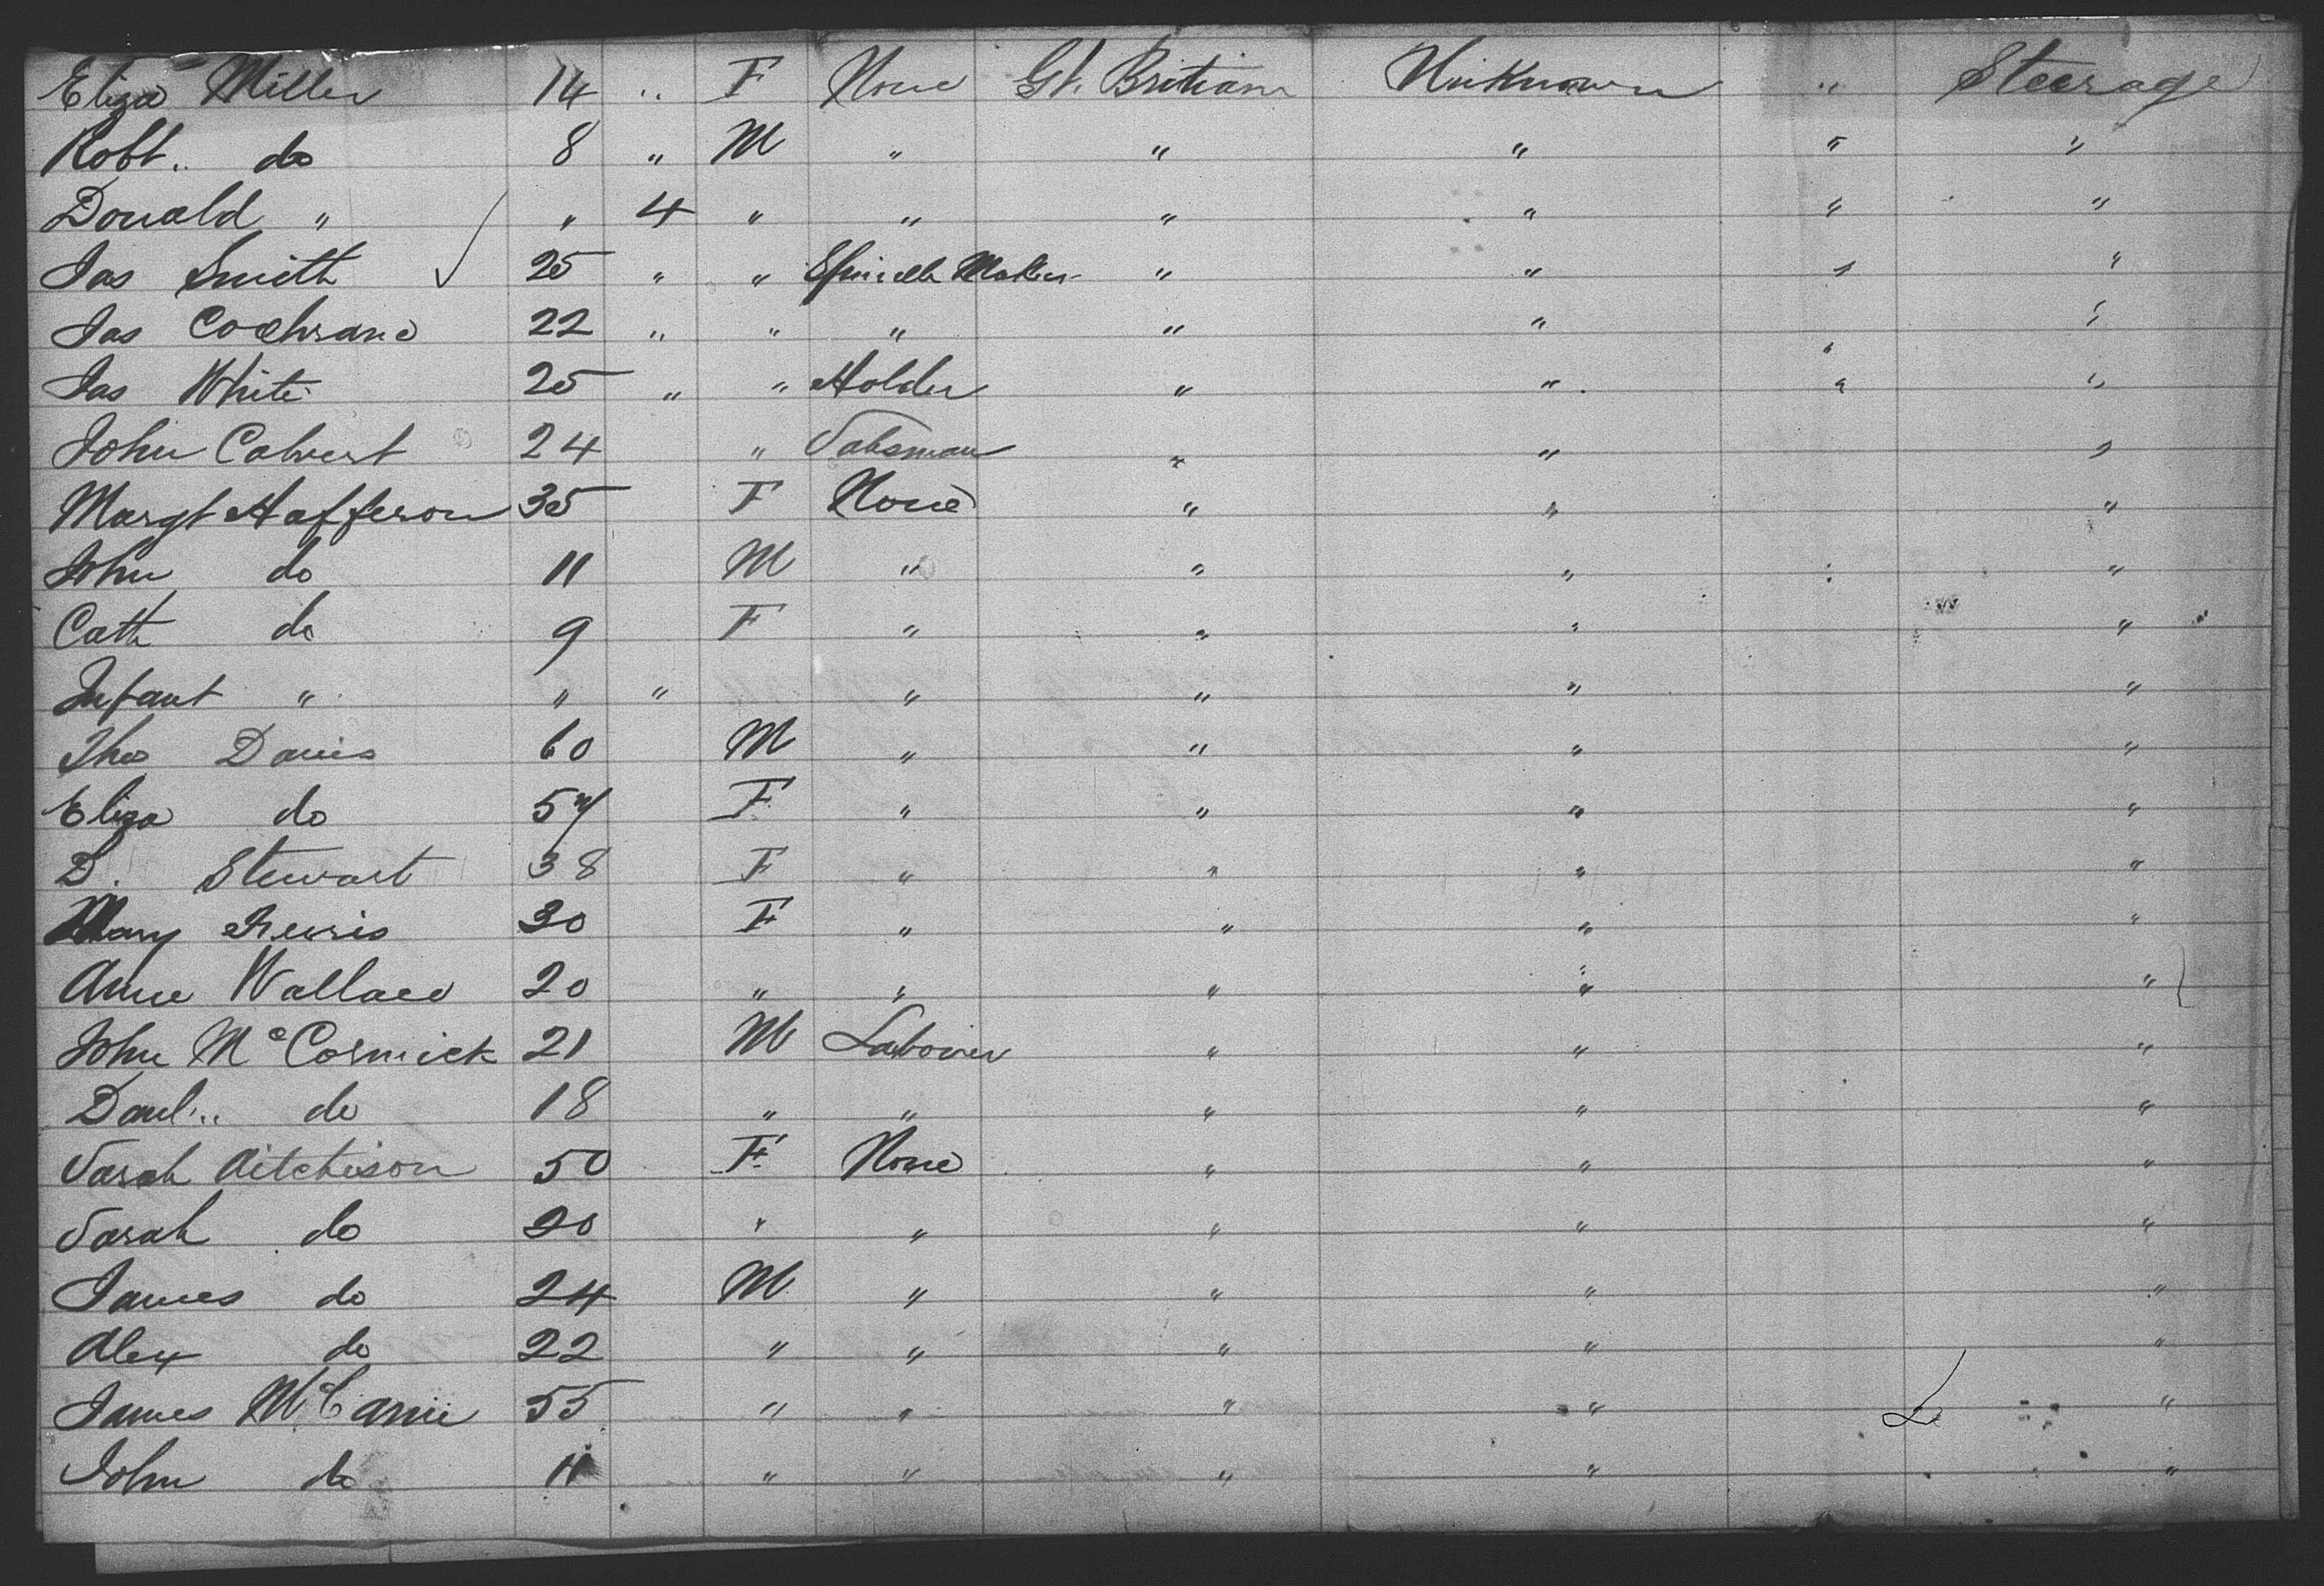 Eliza Miller 14 " F None Gt. Britian Unknown " Steerage
Robt.. do 8 " M " " " " "
Donald " " 4 " " " " " "
Jas Smith 25 " " Spindle Maker " " " "
Jas Cochrane 22 " " " " " " "
Jas White 25 " " Holder " " " "
John Calvert 24 " Salesman " " "
Margt Hafferon 35 F None " " "
John do 11 M " " " " "
Cath do 9 F " " " "
Infant " " " " " " "
Tho Davis 60 M " " " "
Eliza do 57 F " " " "
D. Stewart 38 F " " " "
Mary 30 F " " " "
Anne Wallace 20 " " " " "
John Mc Cormick 21 M Labourer " " "
Danl.. do 18 " " " " "
Sarah Aitchison 50 F None " " "
Sarah do 20 " " " " "
James do 24 M " " " "
Alex do 22 " " " " "
James 55 " " " " "
John do 11 " " " " "